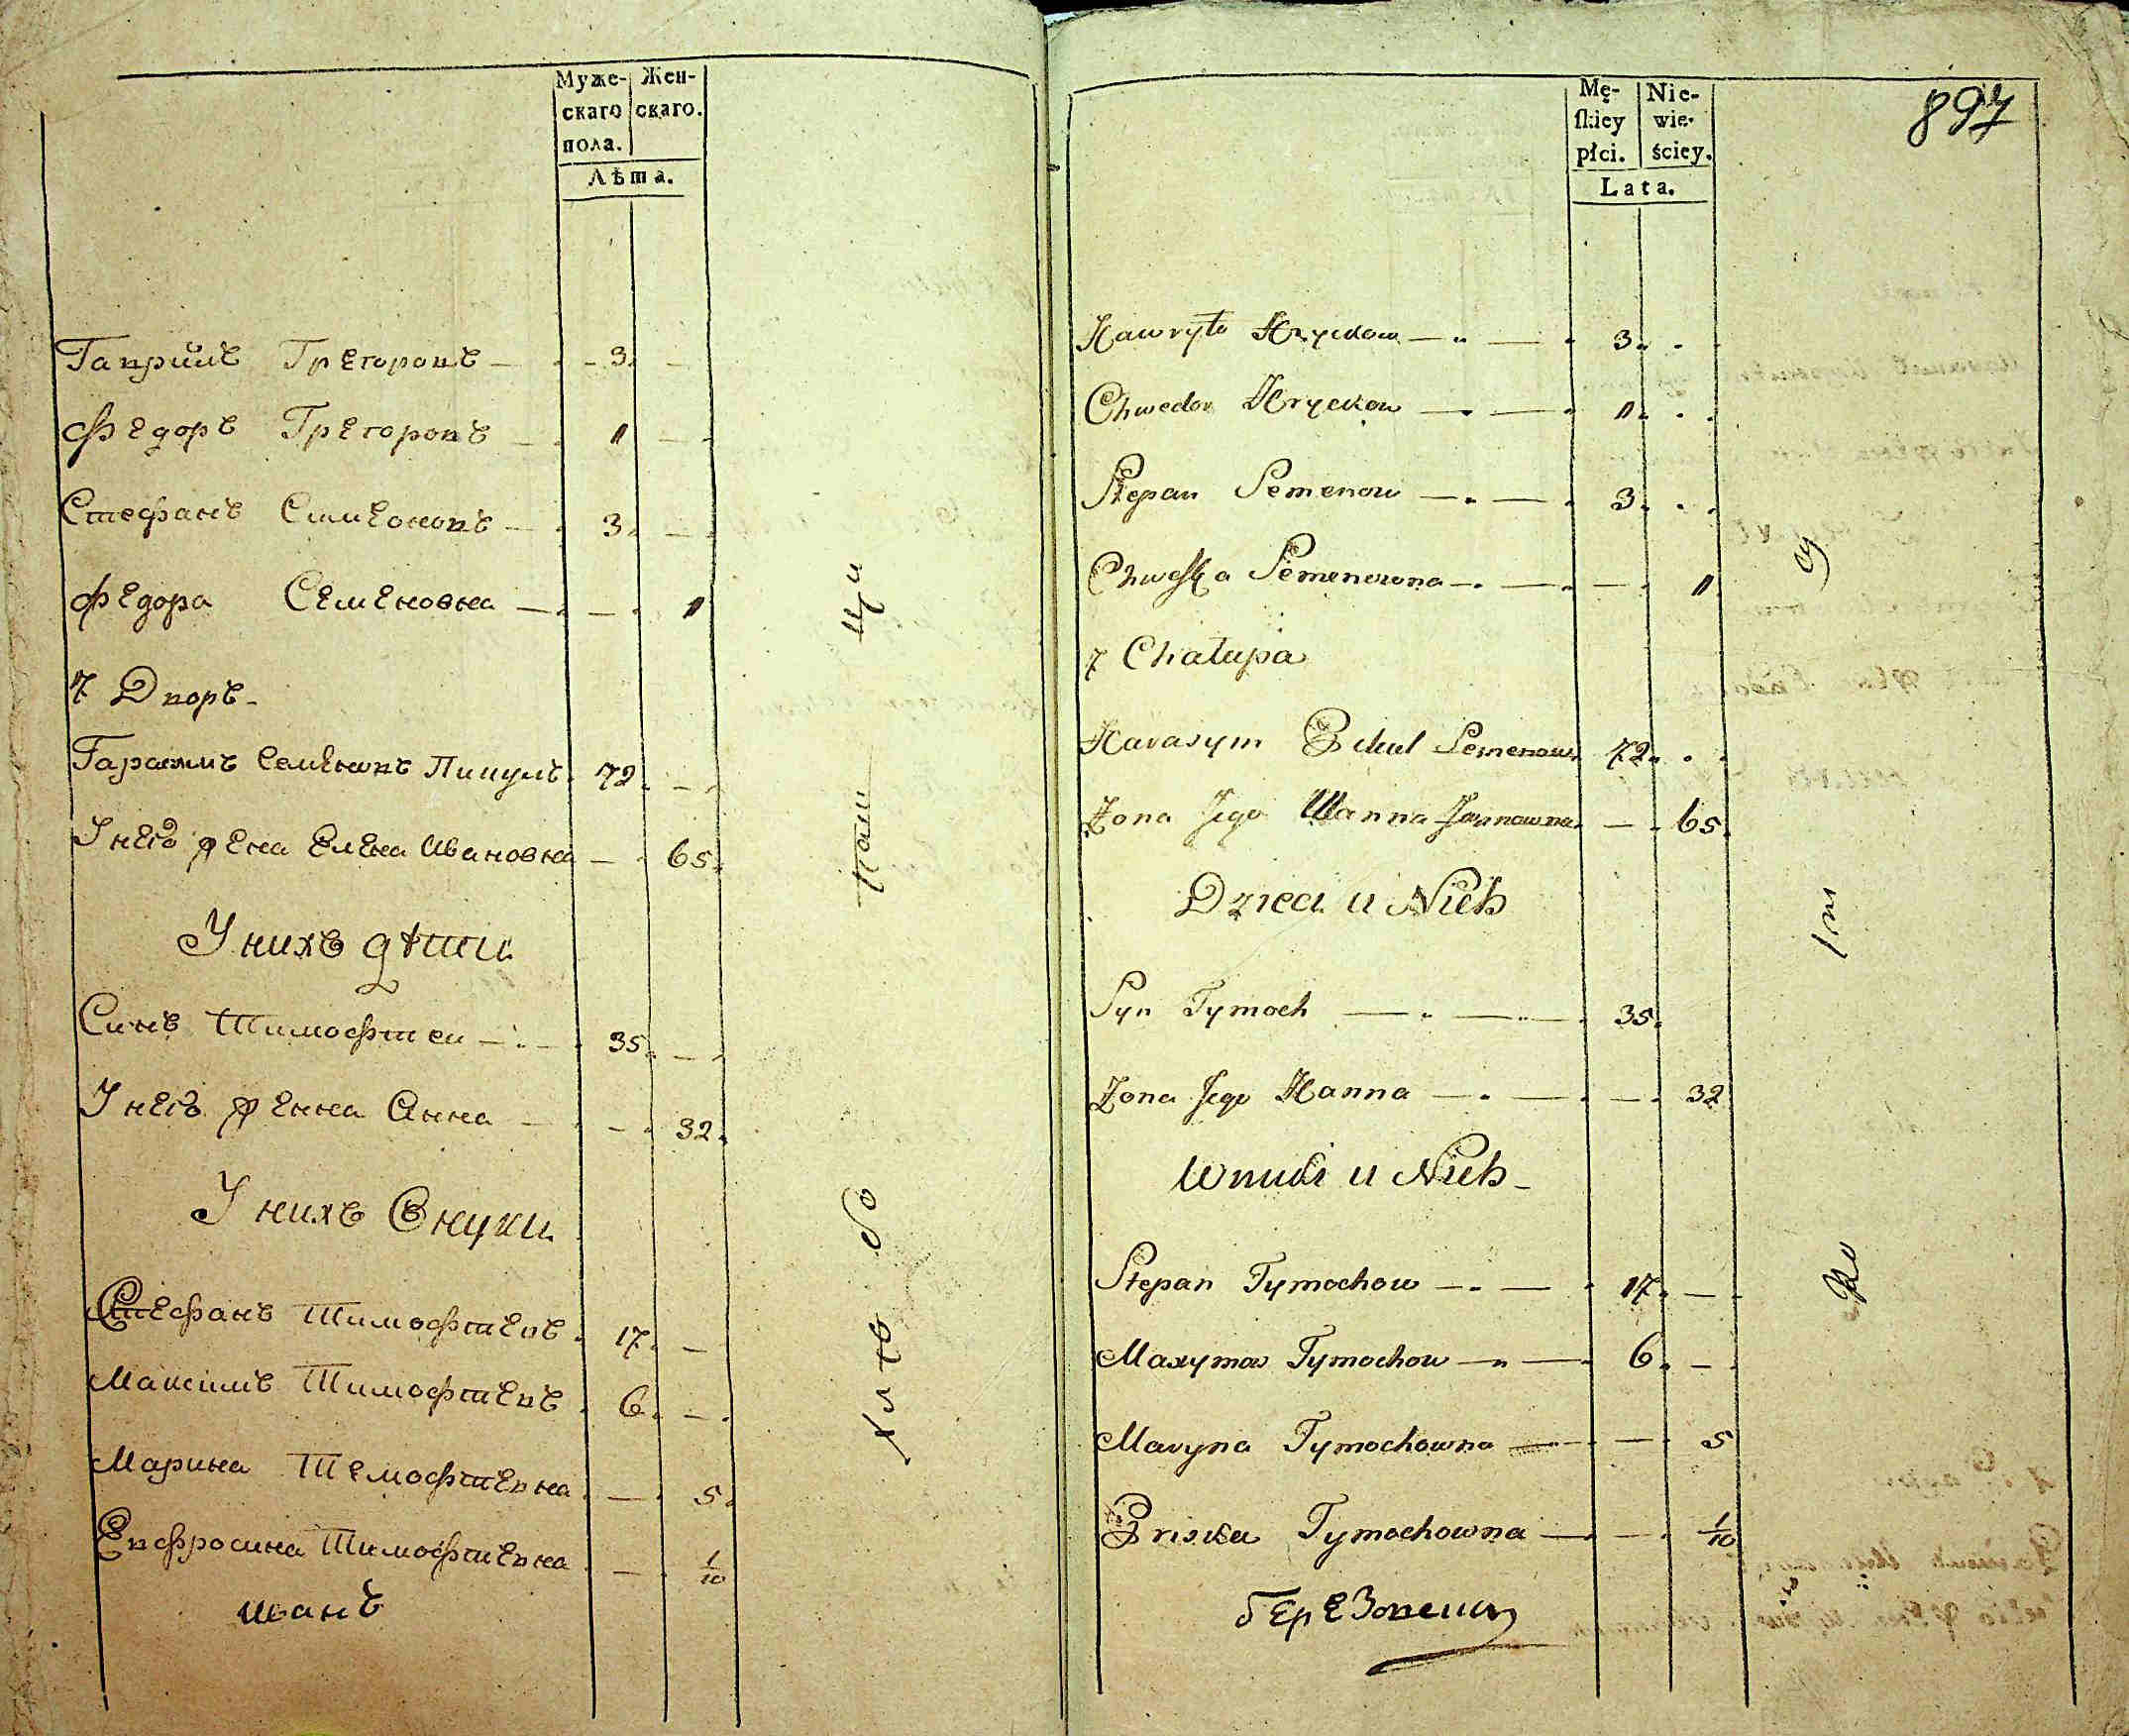 Муже- Жен-
скаго скаго.
пола.
Лѣта.
Гавриилъ Грегоровъ 3
Федоръ Грегоровъ 1
Стефанъ Симеоновъ 3
Федора Семеновна 1
7 Дворъ
Гарасимъ Семеновъ Пикулъ 72
У него жена Елена Ивановна 65
У нихъ дѣти
Синъ Тимофтеи 35
У него женна Анна 32
У нихъ Внуки
Стефанъ Тимофтевъ 17
Максимъ Тимофтевъ 6
Марина Темофтевна 5
Евфросина Тимофтевна 1/10
Иванъ
Mę- Nie-
skiey wie-
płci. ściey.
Lata.
897
Hawryło Hryckow 3
Chwedor Hryckow 1
Stepan Semenow 3
Chweśka Semenowna 1
7 Chałupa
Harasym Pikul Semenow 72
Żona Jego Hanna Janowna 65
Dzieci u Nich
Syn Tymoch 35
Żona Jego Hanna 32
Wnuki u Nich
Stepan Tymochow 17
Maxym Tymochow 6
Maryna Tymochowna 5
Priska Tymochowna 1/10
Березовски